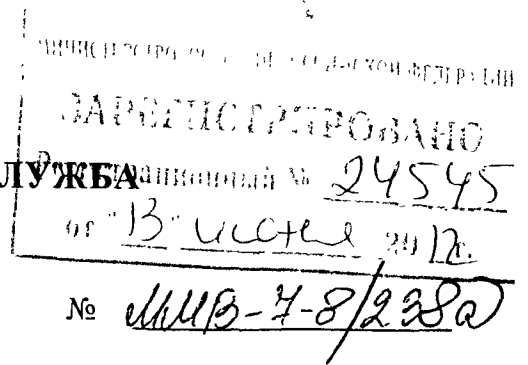 МИНИСТЕРСТВО ЮСТИЦИИ РОССИЙСКОЙ ФЕДЕРАЦИИ
ЗАРЕГИСТРИРОВАНО
Регистрационный № 24545
ЛУЖБА
от "13" июня 2012г.
№ ММВ-7-8/238@